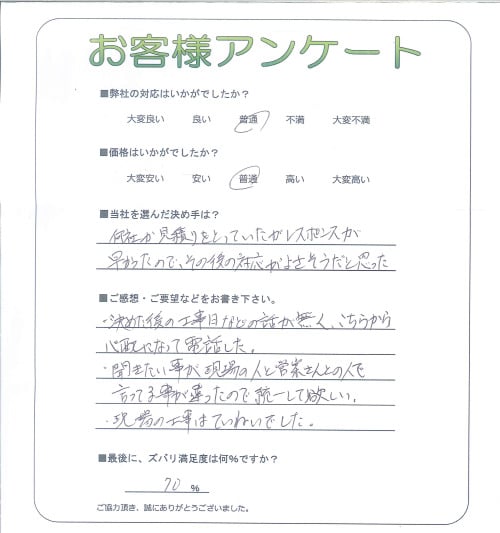 お客様アンケート
■弊社の対応はいかがでしたか?
大変良い 良い 普通 不満 大変不満
■価格はいかがでしたか?
大変安い 安い 普通 高い 大変高い
■当社を選んだ決め手は?
何社か見積りをとっていたがレスポンスが
早かったので、その後の対応がよさそうだと思った
■ご感想・ご要望などをお書き下さい。
・決めた後の工事日などの話が無く、こちらから
心配になって電話した。
・聞きたい事が、現場の人と営業さんとの人で
言ってる事が違ったので統一して欲しい。
・現場の工事はていねいでした。
■最後に、ズバリ満足度は何%ですか?
70 %
ご協力頂き、誠にありがとうございました。